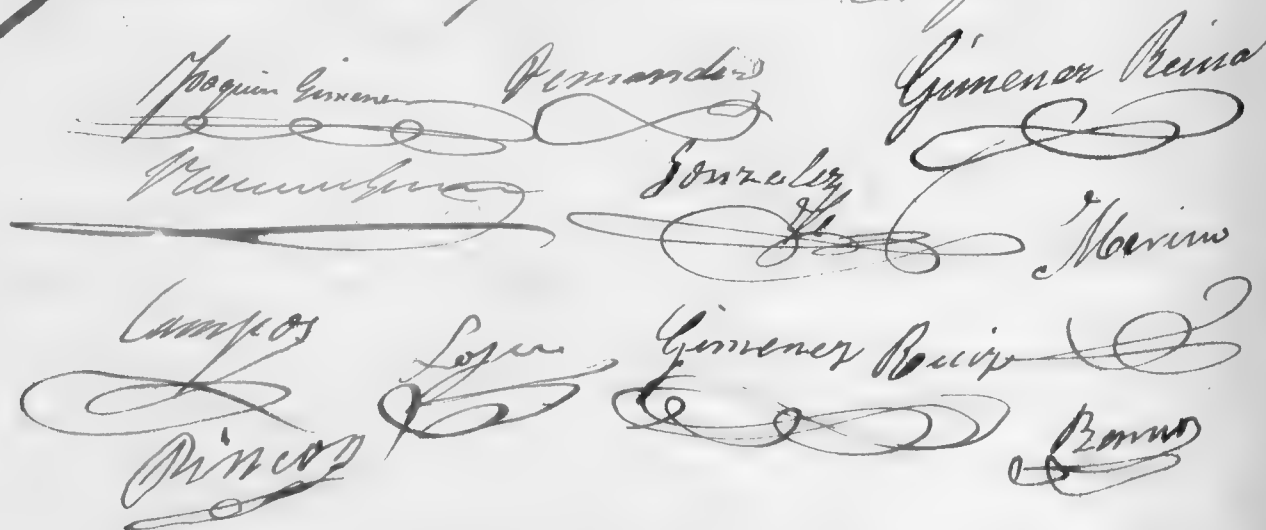 Joaquin Gimenez Fernandez Gimenez Reina
Gonzalez
Merino
Campos Lopez Gimenez Ruiz
Rincon Ramos